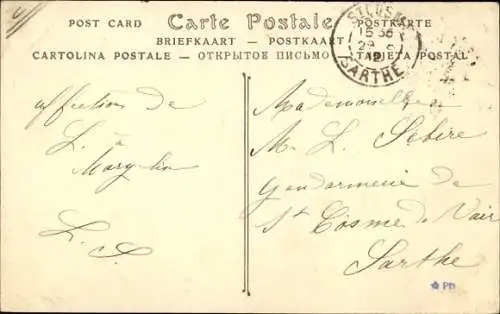 POST CARD Carte Postale POSTKARTE
BRIEFKAART — POSTKAART
CARTOLINA POSTALE — ОТКРЫТОЕ ПИСЬМО TARJETA POSTAL
SARTHE
affection de
L. à
L. S.
Mademoiselle
M. L. Sebire
Gendarmerie de
St Cosme de Vair
Sarthe
PD